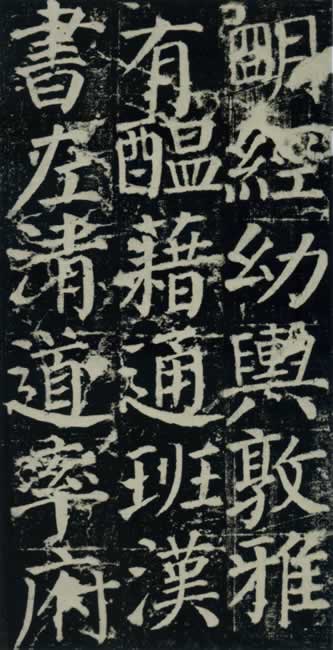 明經幼輿敦雅
有醖藉通班漢
書左清道率府